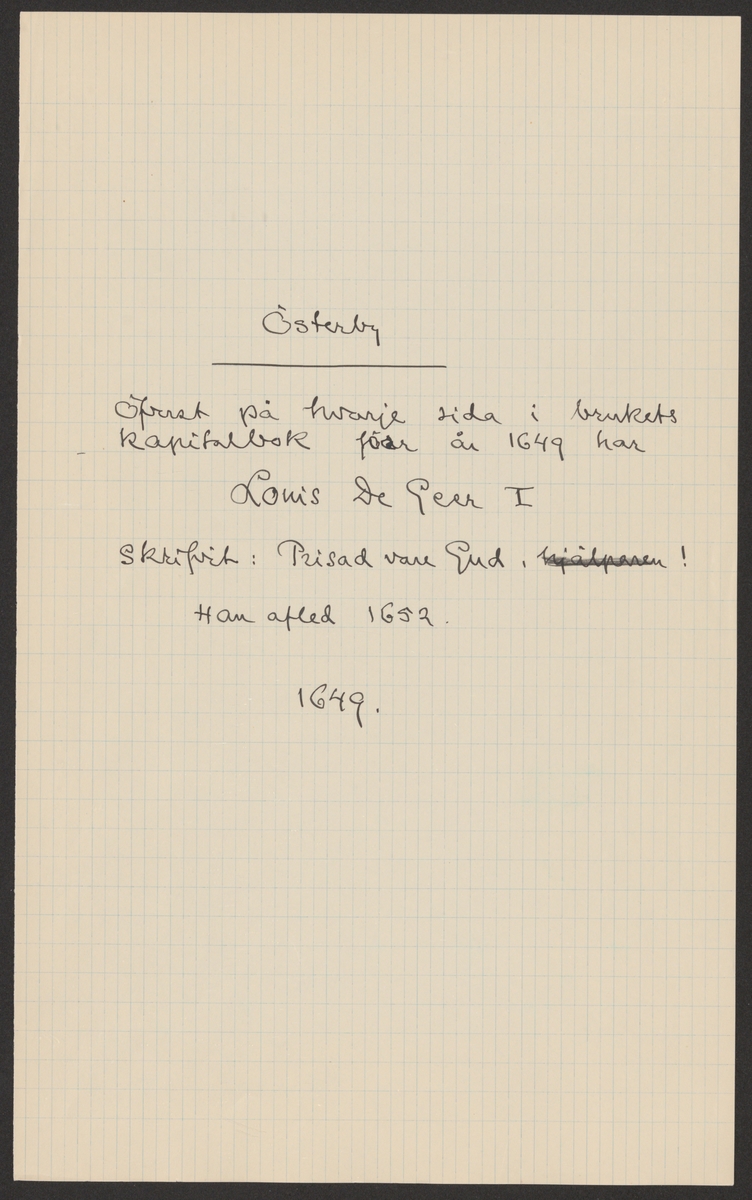 Österby
Öfverst på hvarje sida i brukets
kapitalbok för år 1649 har
Louis De Geer I
skrifvit: Prisad vare Gud, hjälparen!
Han afled 1652.
1649.